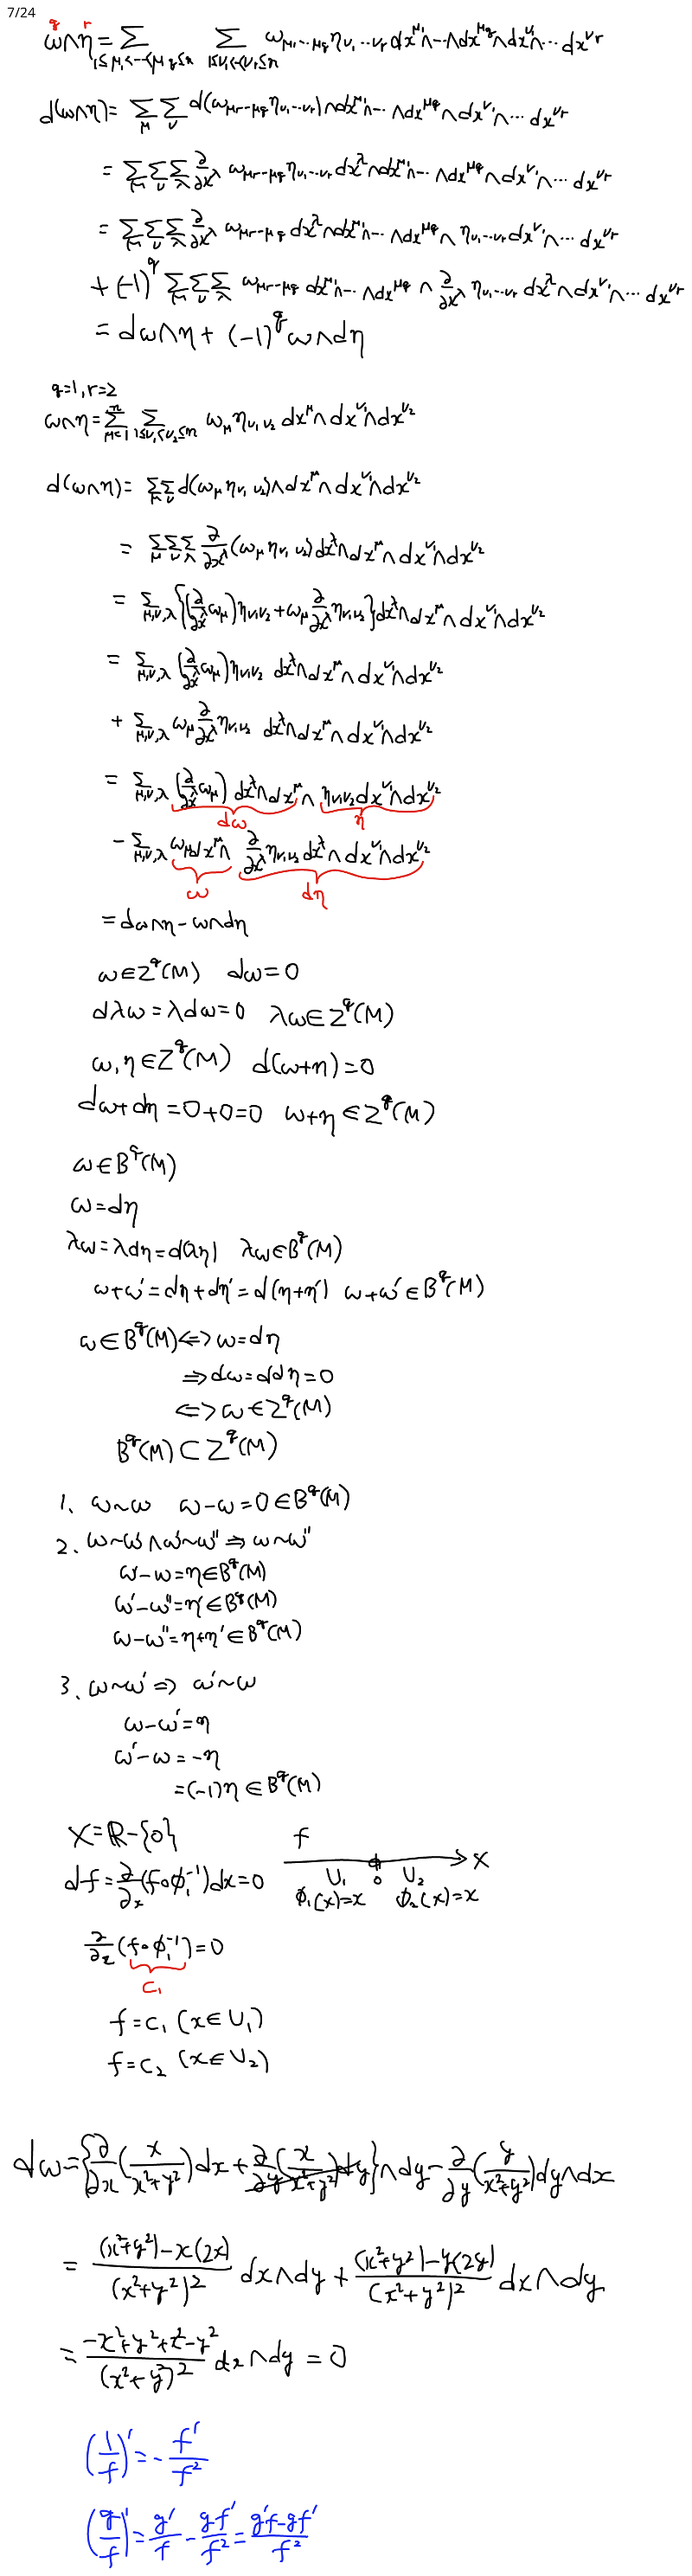 7/24
q r
ω∧η=∑_{1≤μ₁<…<μ_q≤n} ∑_{1≤ν₁<…<ν_r≤n} ω_{μ₁…μ_q} η_{ν₁…ν_r} dx^{μ₁}∧…∧dx^{μ_q}∧dx^{ν₁}∧…dx^{ν_r}
d(ω∧η)= ∑_μ ∑_ν d(ω_{μ₁…μ_q} η_{ν₁…ν_r})∧dx^{μ₁}∧…∧dx^{μ_q}∧dx^{ν₁}∧…dx^{ν_r}
= ∑_μ ∑_ν ∑_λ ∂/∂x^λ ω_{μ₁…μ_q} η_{ν₁…ν_r} dx^λ∧dx^{μ₁}∧…∧dx^{μ_q}∧dx^{ν₁}∧…dx^{ν_r}
= ∑_μ ∑_ν ∑_λ ∂/∂x^λ ω_{μ₁…μ_q} dx^λ∧dx^{μ₁}∧…∧dx^{μ_q}∧η_{ν₁…ν_r}dx^{ν₁}∧…dx^{ν_r}
+(-1)^q ∑_μ ∑_ν ∑_λ ω_{μ₁…μ_q} dx^{μ₁}∧…∧dx^{μ_q}∧ ∂/∂x^λ η_{ν₁…ν_r} dx^λ∧dx^{ν₁}∧…dx^{ν_r}
= dω∧η+(-1)^q ω∧dη
q=1, r=2
ω∧η=∑_{μ=1}^n ∑_{1≤ν₁<ν₂≤n} ω_μ η_{ν₁ν₂} dx^μ∧dx^{ν₁}∧dx^{ν₂}
d(ω∧η)= ∑_μ ∑_ν d(ω_μ η_{ν₁ν₂})∧dx^μ∧dx^{ν₁}∧dx^{ν₂}
= ∑_μ ∑_ν ∑_λ ∂/∂x^λ (ω_μ η_{ν₁ν₂})dx^λ∧dx^μ∧dx^{ν₁}∧dx^{ν₂}
= ∑_{μ,ν,λ} {(∂/∂x^λ ω_μ)η_{ν₁ν₂}+ω_μ ∂/∂x^λ η_{ν₁ν₂}}dx^λ∧dx^μ∧dx^{ν₁}∧dx^{ν₂}
= ∑_{μ,ν,λ} (∂/∂x^λ ω_μ)η_{ν₁ν₂} dx^λ∧dx^μ∧dx^{ν₁}∧dx^{ν₂}
+ ∑_{μ,ν,λ} ω_μ ∂/∂x^λ η_{ν₁ν₂} dx^λ∧dx^μ∧dx^{ν₁}∧dx^{ν₂}
= ∑_{μ,ν,λ} (∂/∂x^λ ω_μ) dx^λ∧dx^μ∧ η_{ν₁ν₂}dx^{ν₁}∧dx^{ν₂}
dω η
- ∑_{μ,ν,λ} ω_μ dx^μ∧ ∂/∂x^λ η_{ν₁ν₂}dx^λ∧dx^{ν₁}∧dx^{ν₂}
ω dη
=dω∧η-ω∧dη
ω∈Z^q(M) dω=0
dλω=λdω=0 λω∈Z^q(M)
ω,η∈Z^q(M) d(ω+η)=0
dω+dη=0+0=0 ω+η∈Z^q(M)
ω∈B^q(M)
ω=dη
λω=λdη=d(λη) λω∈B^q(M)
ω+ω'=dη+dη'=d(η+η') ω+ω'∈B^q(M)
ω∈B^q(M)⇔ω=dη
⇒dω=ddη=0
⇔ω∈Z^q(M)
B^q(M)⊂Z^q(M)
1. ω~ω ω-ω=0∈B^q(M)
2. ω~ω'∧ω'~ω''⇒ω~ω''
ω'-ω=η∈B^q(M)
ω'-ω''=η'∈B^q(M)
ω-ω''=η+η'∈B^q(M)
3. ω~ω'⇒ω'~ω
ω-ω'=η
ω'-ω=-η
=(-1)η∈B^q(M)
X=ℝ-{0} f
df=∂/∂x(f∘φ₁⁻¹)dx=0 U₁ 0 U₂ X
φ₁(x)=x φ₂(x)=x
∂/∂x(f∘φ₁⁻¹)=0
C₁
f=c₁ (x∈U₁)
f=c₂ (x∈U₂)
dω={∂/∂x(x/(x²+y²))dx+∂/∂y(x/(x²+y²))dy}∧dy-∂/∂y(y/(x²+y²))dy∧dx
= ((x²+y²)-x(2x))/(x²+y²)² dx∧dy+((x²+y²)-y(2y))/(x²+y²)² dx∧dy
= (-x²+y²+x²-y²)/(x²+y²)² dx∧dy=0
(1/f)'=-f'/f²
(g/f)'=g'/f-gf'/f²=(g'f-gf')/f²